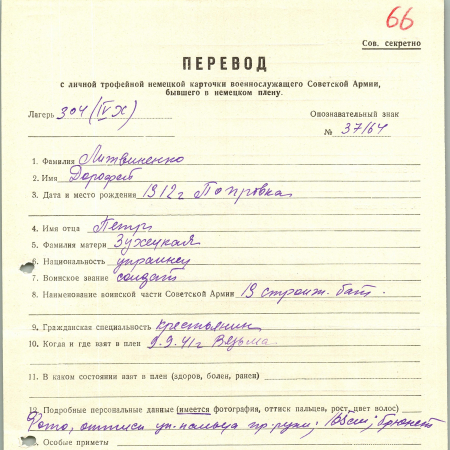 66
Сов. секретно
ПЕРЕВОД
с личной трофейной немецкой карточки военнослужащего Советской Армии,
бывшего в немецком плену.
Лагерь 304 (IV X)
Опознавательный знак
№ 37164
1. Фамилия Литвиненко
2. Имя Дорофей
3. Дата и место рождения 1912 г Покровка
4. Имя отца Петр
5. Фамилия матери Зухецкая
6. Национальность украинец
7. Воинское звание солдат
8. Наименование воинской части Советской Армии 19 строит. бат.
9. Гражданская специальность крестьянин
10. Когда и где взят в плен 9.9.41 г Вязьма
11. В каком состоянии взят в плен (здоров, болен, ранен)
12. Подробные персональные данные (имеется фотография, оттиск пальцев, рост, цвет волос)
Фото, оттиск ук. пальца пр. руки; см; брюнет
Особые приметы